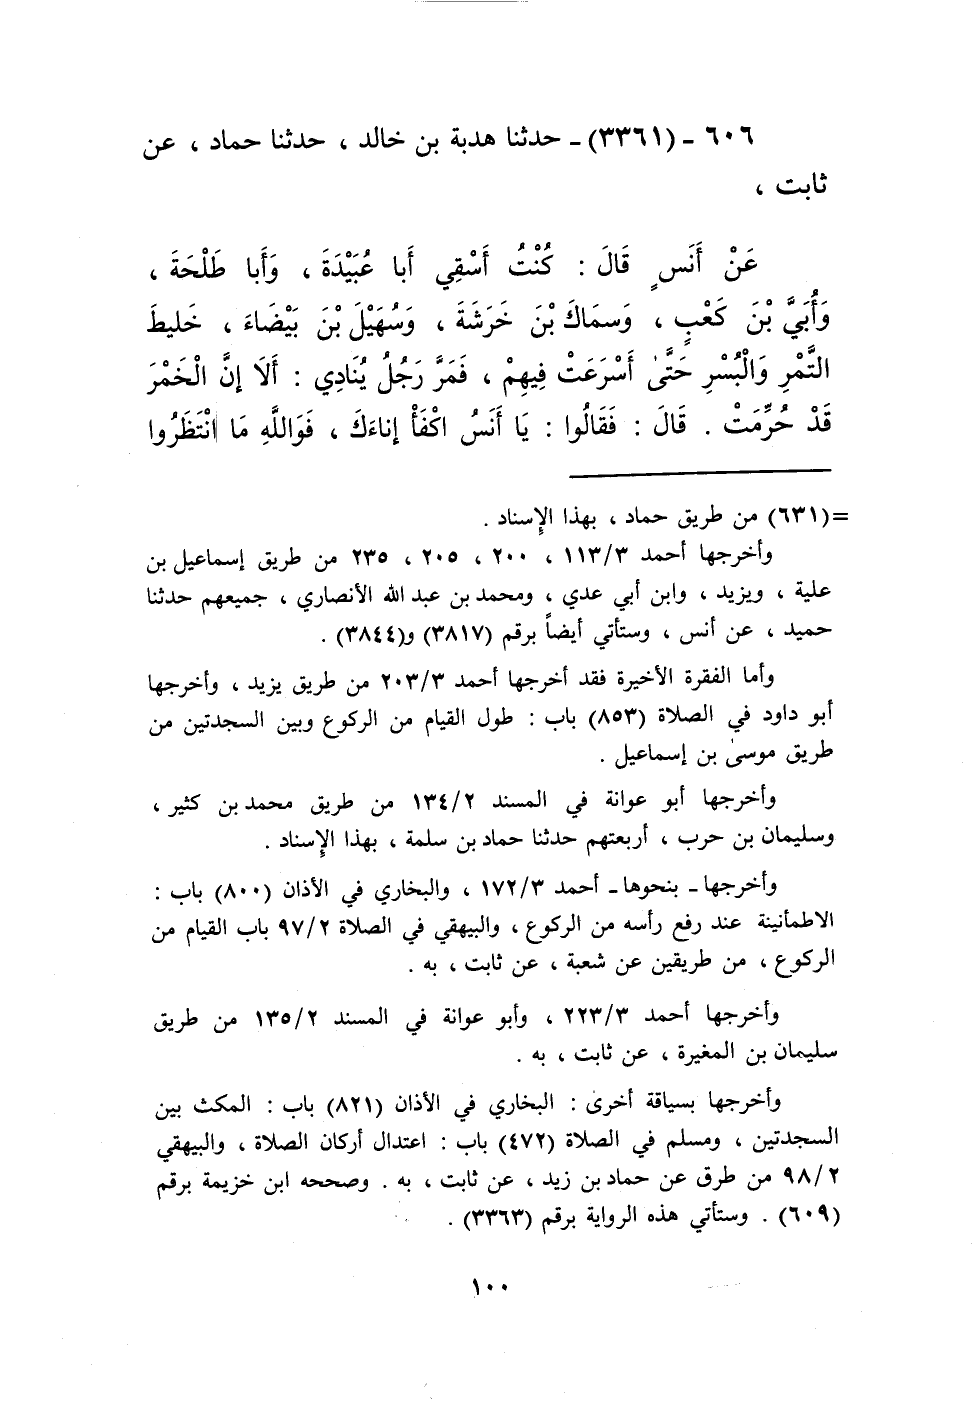 ٦٠٦ - (٣٣٦١) - حدثنا هدبة بن خالد ، حدثنا حماد ، عن
ثابت ،
عَنْ أَنَسٍ قَالَ : كُنْتُ أَسْقِي أَبا عُبَيْدَةَ ، وَأَبا طَلْحَةَ ،
وَأُبَيَّ بْنَ كَعْبٍ ، وَسمَاكَ بْنَ خَرَشَةَ ، وَسُهَيْلَ بْنَ بَيْضَاءَ ، خَليطَ
التَّمْرِ وَالْبُسْرِ حَتَّىٰ أَسْرَعَتْ فِيهِمْ ، فَمَرَّ رَجُلٌ يُنَادِي : أَلَا إِنَّ الْخَمْرَ
قَدْ حُرِّمَتْ . قَالَ : فَقَالُوا : يَا أَنَسُ اكْفَأْ إِناءَكَ ، فَوَاللَّهِ مَا انْتَظَرُوا
=(٦٣١) من طريق حماد ، بهذا الإِسناد .
وأخرجها أحمد ١١٣/٣ ، ٢٠٠ ، ٢٠٥ ، ٢٣٥ من طريق إسماعيل بن
علية ، ويزيد ، وابن أبي عدي ، ومحمد بن عبد الله الأنصاري ، جميعهم حدثنا
حميد ، عن أنس ، وستأتي أيضاً برقم (٣٨١٧) و(٣٨٤٤) .
وأما الفقرة الأخيرة فقد أخرجها أحمد ٢٠٣/٣ من طريق يزيد ، وأخرجها
أبو داود في الصلاة (٨٥٣) باب : طول القيام من الركوع وبين السجدتين من
طريق موسىٰ بن إسماعيل .
وأخرجها أبو عوانة في المسند ١٣٤/٢ من طريق محمد بن كثير ،
وسليمان بن حرب ، أربعتهم حدثنا حماد بن سلمة ، بهذا الإِسناد .
وأخرجها - بنحوها - أحمد ١٧٢/٣ ، والبخاري في الأذان (٨٠٠) باب :
الاطمأنينة عند رفع رأسه من الركوع ، والبيهقي في الصلاة ٩٧/٢ باب القيام من
الركوع ، من طريقين عن شعبة ، عن ثابت ، به .
وأخرجها أحمد ٢٢٣/٣ ، وأبو عوانة في المسند ١٣٥/٢ من طريق
سليمان بن المغيرة ، عن ثابت ، به .
وأخرجها بسياقة أخرى : البخاري في الأذان (٨٢١) باب : المكث بين
السجدتين ، ومسلم في الصلاة (٤٧٢) باب : اعتدال أركان الصلاة ، والبيهقي
٩٨/٢ من طرق عن حماد بن زيد ، عن ثابت ، به . وصححه ابن خزيمة برقم
(٦٠٩) . وستأتي هذه الرواية برقم (٣٣٦٣) .
١٠٠